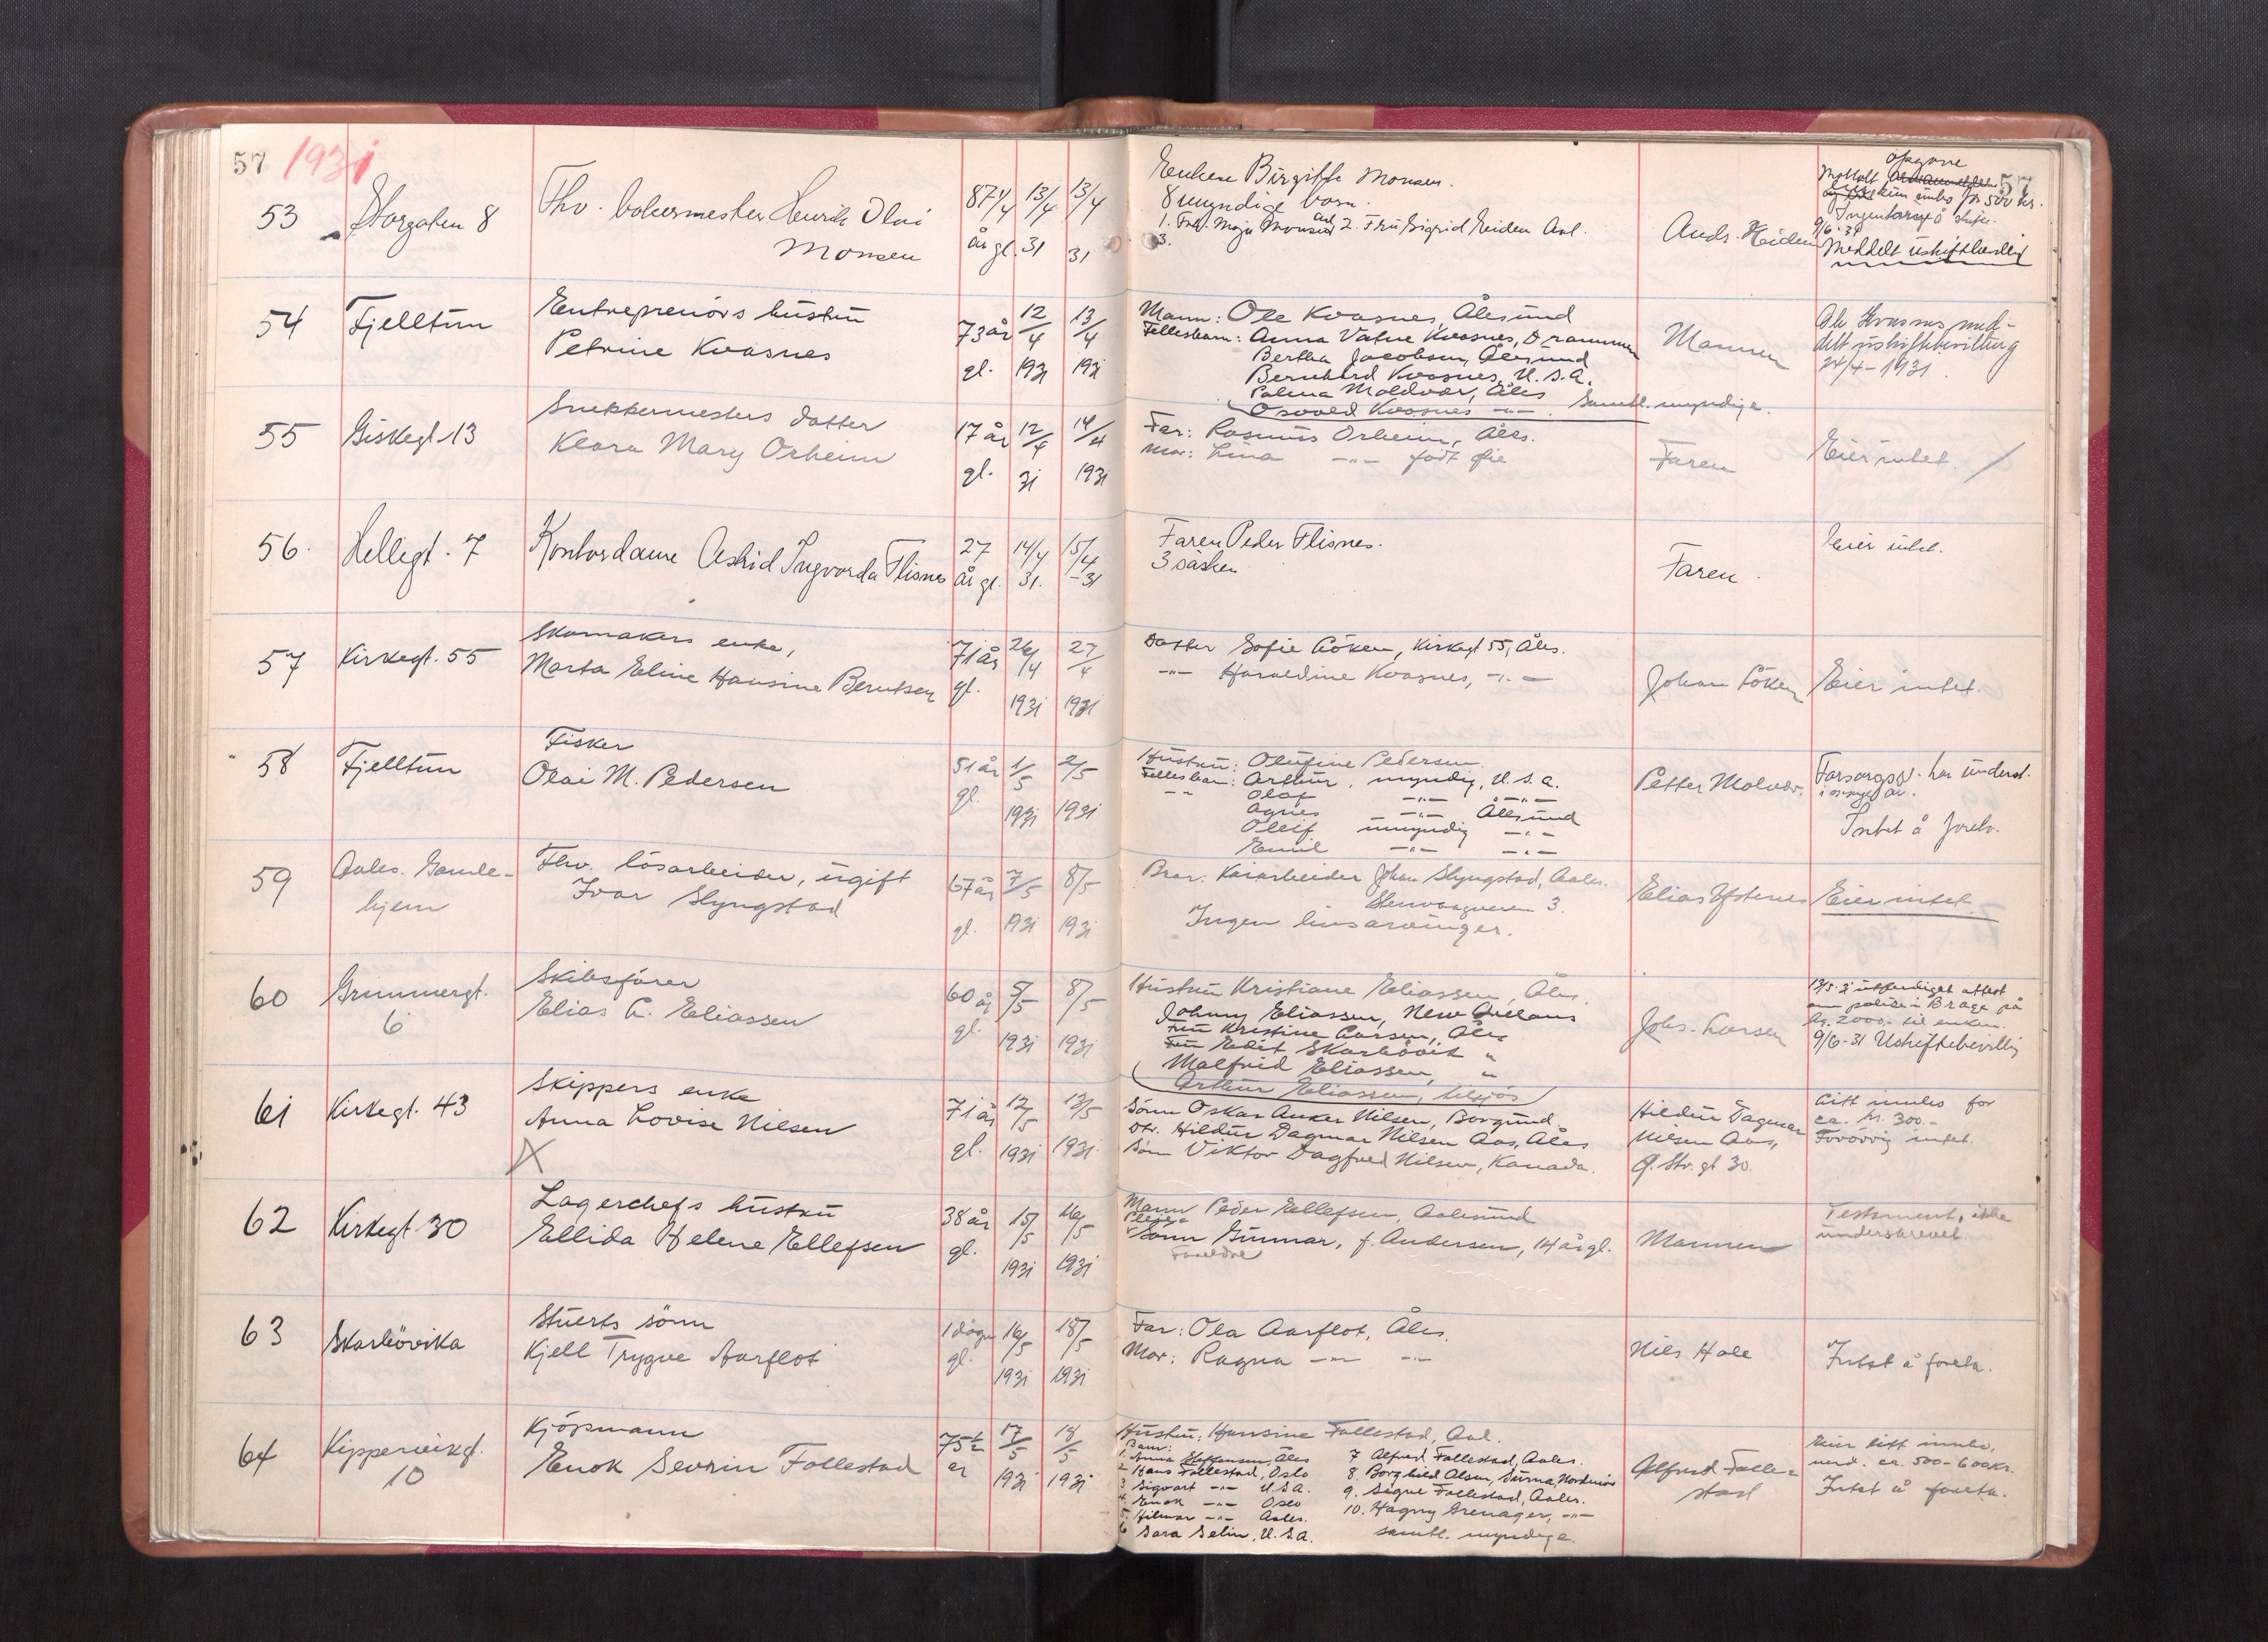 57 1931
57
53 Storgaten 8 Fhv. bakermester Henrik Olai Monsen 87 1/4 år gl. 13/4 31 13/4 31
Enken Birgitte Monsen.
8 myndige barn.
1. Frk. Maja Monsen Aal 2. Fru Sigrid Heiden Aal.
3.
Ands. Heiden
opgave
Mottatt
kun innbo for 500 kr.
Ingen
9/6-31
Meddelt uskiftbevillig
54 Fjelltun Entreprenörs hustru
Petrine Kvasnes
73 år gl. 12/4 1931 13/4 1931
Mann: Ole Kvasnes, Ålesund
Fellesbarn: Anna Vatne Kvasnes, Drammen
Bertha Jacobsen, Ålesund
Bernhard Kvasnes, U.S.A.
Palma Moldvær, Åles
Osvald Kvasnes -"-. Samtl. myndige.
Mannen
Ole Kvasnes med-
delt uskiftebevilling
24/4-1931.
55 Giskegt. 13 Snekkermesters datter
Klara Mary Orheim
17 år gl. 12/4 31 14/4 1931
Far: Rasmus Orheim, Åles.
Mor: Lina -"- födt Öie
Faren
Eier intet.
56. Hellegt. 7 Kontordame Astrid Ingvarda Flisnes 27 år gl. 14/4 31. 15/4 -31
Faren Peder Flisnes.
3 søsken
Faren.
Eier intet.
57 Kirkegt. 55 Skomakers enke,
Marta Eline Hansine Berntsen
71 år gl. 26/4 1931 27/4 1931
Datter Sofie Löken, Kirkegt 55, Åles.
-"- Haraldine Kvasnes, -"-
Johan Löken
Eier intet.
58 Fjelltun Fisker
Olai M. Pedersen
51 år gl. 1/5 1931 2/5 1931
Hustru: Olufine Pedersen.
Fellesbarn: Arthur, myndig, U.S.A.
-"- Olaf -"- -"-
Agnes -"- Ålesund
Oleif umyndig -"-
Emil -"- -"-
Petter Molvær.
Forsorgsv. har underst.
i mange år.
Intet å foreta.
59 Aales. Gamle-
hjem
Fhv. lösarbeider, ugift
Ivar Slyngstad
67 år gl. 7/5 1931 8/5 1931
Bror: Kaiarbeider Johan Slyngstad, Aales.
3.
Ingen livsarvinger.
Elias Ystenes
Eier intet.
60 Grimmergt.
6
Skibsförer
Elias L. Eliassen
60 år gl. 5/5 1931 8/5 1931
Hustru Kristiane Eliassen, Åles.
Johnny Eliassen, New Orleans
Fru Kristine Larsen, Åles
Fru Edit Skarbövik "
Malfrid Eliassen, "
Arthur Eliassen, tilsjös
Johs. Larsen
13/5-31 utferdiget attest
om polise i Brage på
kr. 2000.- til enken.
9/6-31 Uskiftebevilling
61 Kirkegt. 43 Skippers enke
Anna Lovise Nilsen
X
71 år gl. 12/5 1931 13/5 1931
Sönn Oskar Anker Nilsen, Borgund.
Dtr. Hildur Dagmar Nilsen Aas, Åles
Sönn Viktor Dagfred Nilsen, Kanada.
Hildur Dagmar
Nilsen Aas,
Ö. Str. gt 30.
Litt innbo for
ca. kr. 300.-
Forövrig intet.
62 Kirkegt 30 Lagerchefs hustru
Ellida Helene Ellefsen
38 år gl. 15/5 1931 16/5 1931
Mann Peder Ellefsen, Aalesund
Pleie-
Sönn Gunnar, f. Andersen, 14 år gl.
Foreldre
Mannen
Testament, ikke
underskrevet.
63 Skarbövika Stuerts sönn
Kjell Trygve Aarflot
1 dögn gl. 16/5 1931 18/5 1931
Far: Ola Aarflot, Åles.
Mor: Ragna -"- -"-
Nils Hole
Intet å foreta.
64 Kipperviksgt.
10
Kjöpmann
Enok Sevrin Follestad
75 1/2 år 17/5 1931 18/5 1931
Hustru: Hansine Follestad, Aal.
Barn:
1. Anna Steffensen, Åles
2 Hans Follestad, Oslo
3 Sigvart -"- U.S.A.
4. Enok -"- Oslo
5. Hilmar -"- Aales.
6 Sara Selin, U.S.A.
7 Alfred Follestad, Aales.
8. Borghild Olsen, Surna, Nordmöre
9. Signe Follestad, Aales.
10. Hagny Grenager, -"-
samtl. myndige.
Alfred Folle-
stad
Eier litt innbo,
verd. ca. 500-600 kr.
Intet å foreta.